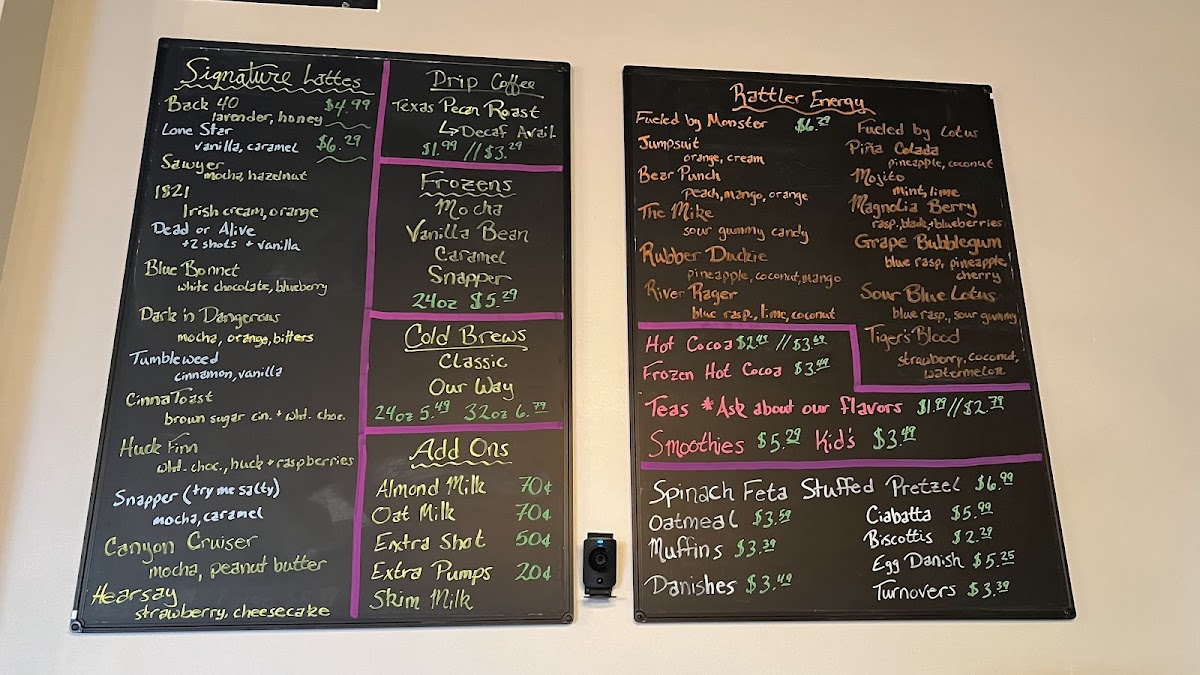 Signature Lattes
Back 40 $4.99
lavender, honey
Lone Star
vanilla, caramel $6.29
Sawyer
mocha, hazelnut
1821
Irish cream, orange
Dead or Alive
+2 shots + vanilla
Blue Bonnet
white chocolate, blueberry
Dark n Dangerous
mocha, orange, bitters
Tumbleweed
cinnamon, vanilla
CinnaToast
brown sugar cin. + wht. choc.
Huck Finn
wht. choc., huck + raspberries
Snapper (try me salty)
mocha, caramel
Canyon Cruiser
mocha, peanut butter
Hearsay
strawberry, cheesecake
Drip Coffee
Texas Pecan Roast
↳ Decaf Avail.
$1.99 // $3.29
Frozens
Mocha
Vanilla Bean
Caramel
Snapper
24oz $5.29
Cold Brews
Classic
Our Way
24oz 5.49 32oz 6.79
Add Ons
Almond Milk 70¢
Oat Milk 70¢
Extra Shot 50¢
Extra Pumps 20¢
Skim Milk
Rattler Energy
Fueled by Monster $6.29
Jumpsuit
orange, cream
Bear Punch
Peach, mango, orange
The Mike
sour gummy candy
Rubber Duckie
pineapple, coconut, mango
River Rager
blue rasp., lime, coconut
Fueled by Lotus
Piña Colada
pineapple, coconut
Mojito
mint, lime
Magnolia Berry
rasp, black, + blueberries
Grape Bubblegum
blue rasp, pineapple,
cherry
Sour Blue Lotus
blue rasp., sour gummy
Tiger's Blood
strawberry, coconut,
watermelon
Hot Cocoa $2.49 // $3.49
Frozen Hot Cocoa $3.49
Teas *Ask about our flavors $1.79 // $2.79
Smoothies $5.29 Kid's $3.49
Spinach Feta Stuffed Pretzel $6.99
Oatmeal $3.59
Muffins $3.39
Danishes $3.49
Ciabatta $5.99
Biscottis $2.29
Egg Danish $5.25
Turnovers $3.39